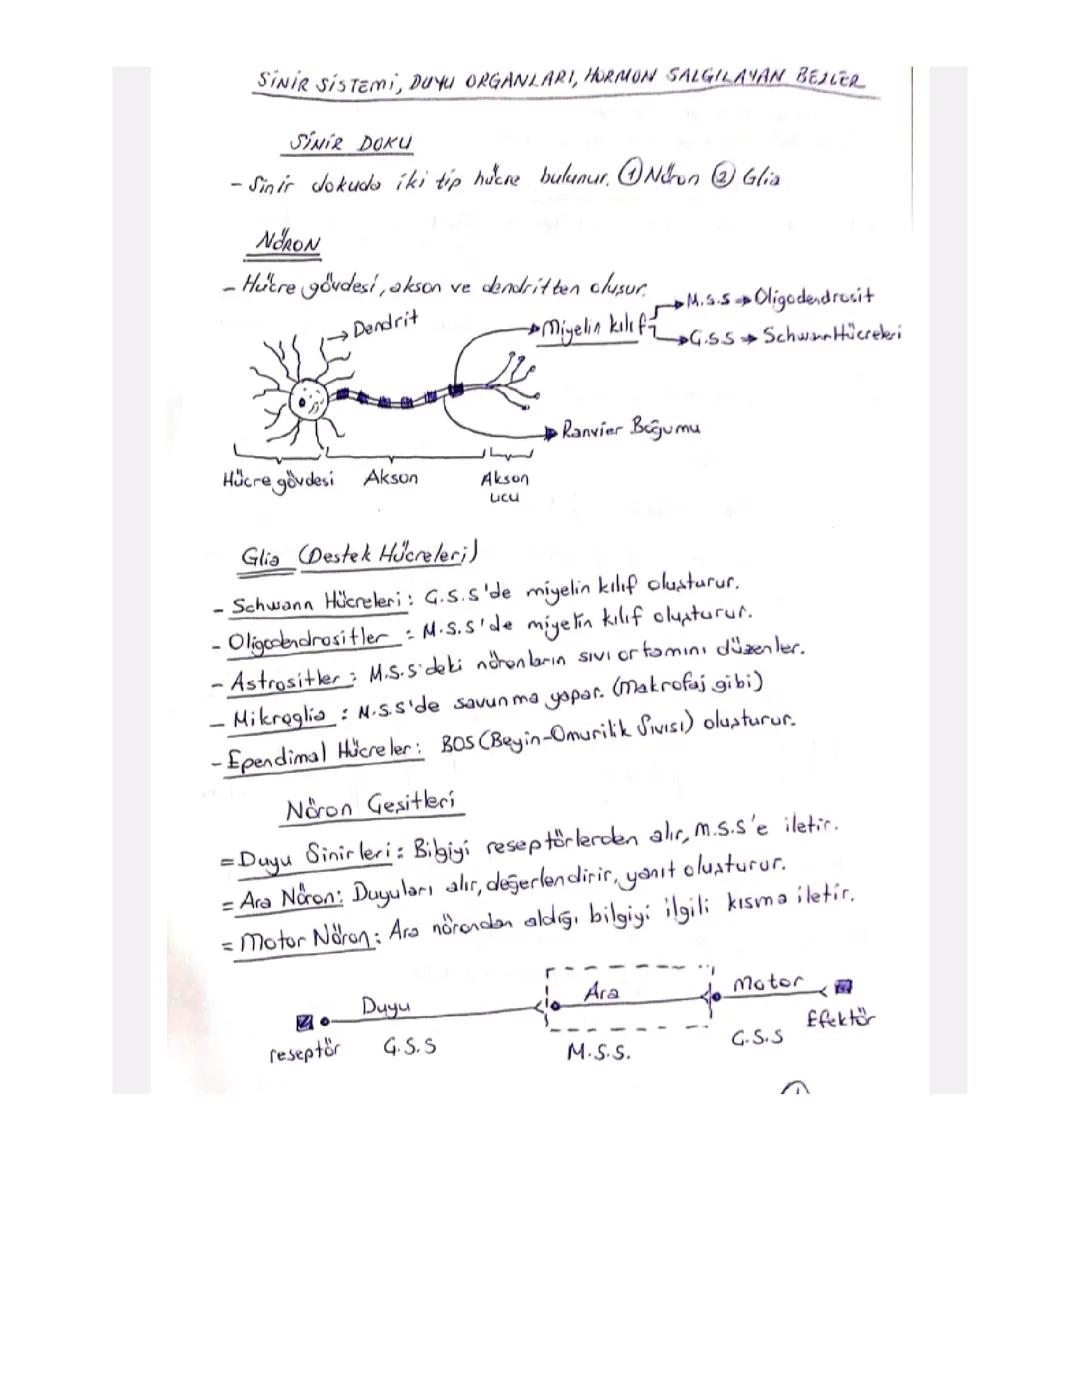 SİNİR SİSTEMİ, DUYU ORGANLARI, HORMON SALGILAYAN BEZLER
SİNİR DOKU
- Sinir dokuda iki tip hücre bulunur. ① Nöron ② Glia
NÖRON
- Hücre gövdesi, akson ve dendritten oluşur.
M.S.S → Oligodendrosit
Dendrit
Miyelin kılıf
G.S.S → Schwann Hücreleri
Ranvier Boğumu
Hücre gövdesi Akson Akson ucu
Glia (Destek Hücreleri)
- Schwann Hücreleri: G.S.S'de miyelin kılıf oluşturur.
- Oligodendrositler: M.S.S'de miyelin kılıf oluşturur.
- Astrositler: M.S.S'deki nöronların sıvı ortamını düzenler.
- Mikroglia: M.S.S'de savunma yapar. (Makrofaj gibi)
- Ependimal Hücreler: BOS (Beyin-Omurilik Sıvısı) oluşturur.
Nöron Çeşitleri
= Duyu Sinirleri: Bilgiyi reseptörlerden alır, M.S.S'e iletir.
= Ara Nöron: Duyuları alır, değerlendirir, yanıt oluşturur.
= Motor Nöron: Ara nörondan aldığı bilgiyi ilgili kısma iletir.
Duyu Ara Motor
reseptör G.S.S M.S.S. G.S.S Efektör
①